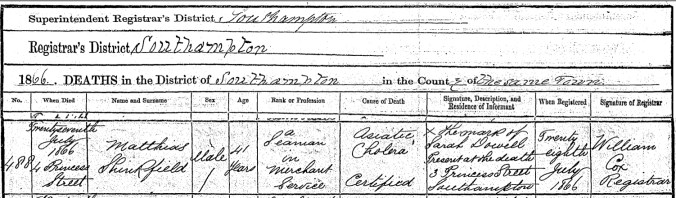 Superintendent Registrar's District, Southampton
Registrar's District, Southampton
1866. DEATHS in the District of Southampton in the County of the same Town
No. When Died Name and Surname Sex Age Rank or Profession Cause of Death Signature, Description, and Residence of Informant When Registered Signature of Registrar
488
Twenty seventh
July
1866
4 Princess
Street
Matthias
Shinkfield
Male
41
Years
a
Seaman
in
Merchant
Service
Asiatic
Cholera
Certified
X The mark of
Sarah Dowell
Present at the death
3 Princess Street
Southampton
Twenty
eighth
July
1866
William
Cox
Registrar